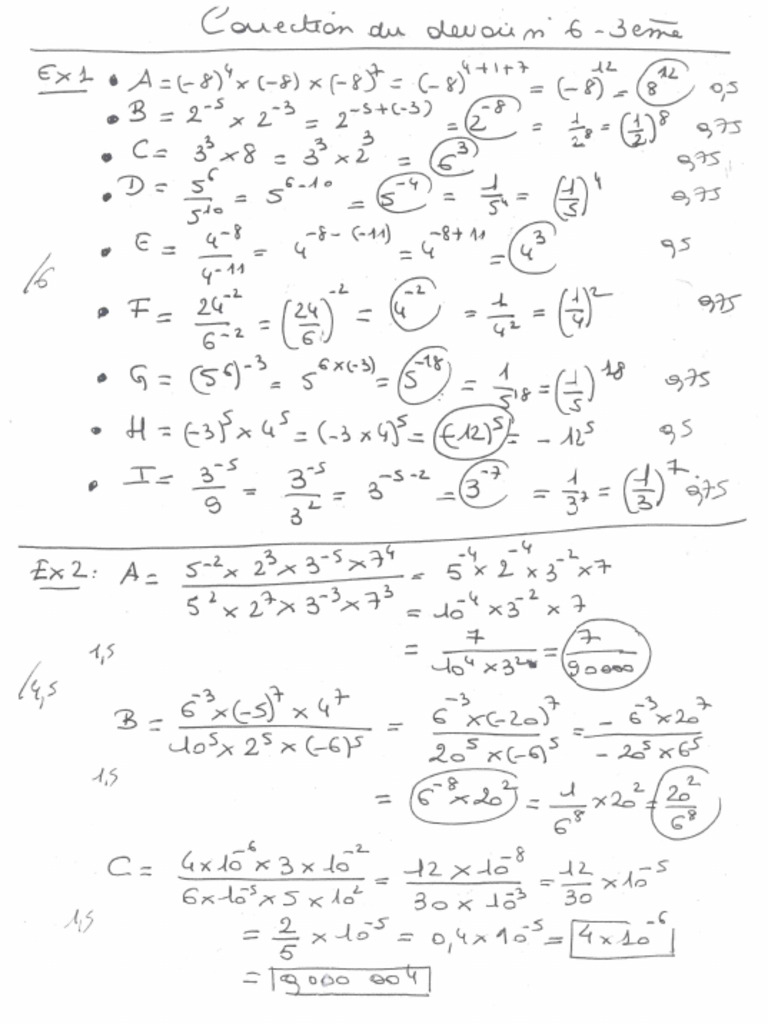 Correction du devoir n° 6 - 3eme
Ex 1 • A = (-8)⁴ × (-8) × (-8)⁷ = (-8)⁴⁺¹⁺⁷ = (-8)¹² = 8¹² 0,5
• B = 2⁻⁵ × 2⁻³ = 2⁻⁵⁺⁽⁻³⁾ = 2⁻⁸ = 1/2⁸ = (1/2)⁸ 0,75
• C = 3³ × 8 = 3³ × 2³ = 6³ 0,75
• D = 5⁶/5¹⁰ = 5⁶⁻¹⁰ = 5⁻⁴ = 1/5⁴ = (1/5)⁴ 0,75
• E = 4⁻⁸/4⁻¹¹ = 4⁻⁸⁻⁽⁻¹¹⁾ = 4⁻⁸⁺¹¹ = 4³ 0,5
/6
• F = 24⁻²/6⁻² = (24/6)⁻² = 4⁻² = 1/4² = (1/4)² 0,75
• G = (5⁶)⁻³ = 5⁶ˣ⁽⁻³⁾ = 5⁻¹⁸ = 1/5¹⁸ = (1/5)¹⁸ 0,75
• H = (-3)⁵ × 4⁵ = (-3 × 4)⁵ = (-12)⁵ = - 12⁵ 0,5
• I = 3⁻⁵/9 = 3⁻⁵/3² = 3⁻⁵⁻² = 3⁻⁷ = 1/3⁷ = (1/3)⁷ 0,75
Ex 2 : A = (5⁻² × 2³ × 3⁻⁵ × 7⁴)/(5² × 2⁷ × 3⁻³ × 7³) = 5⁻⁴ × 2⁻⁴ × 3⁻² × 7
= 10⁻⁴ × 3⁻² × 7
1,5 = 7/(10⁴ × 3²) = 7/90000
/4,5
B = (6⁻³ × (-5)⁷ × 4⁷)/(10⁵ × 2⁵ × (-6)⁵) = (6⁻³ × (-20)⁷)/(20⁵ × (-6)⁵) = (- 6⁻³ × 20⁷)/(- 20⁵ × 6⁵)
1,5 = 6⁻⁸ × 20² = 1/6⁸ × 20² = 20²/6⁸
C = (4 × 10⁻⁶ × 3 × 10⁻²)/(6 × 10⁻⁵ × 5 × 10²) = (12 × 10⁻⁸)/(30 × 10⁻³) = 12/30 × 10⁻⁵
1,5 = 2/5 × 10⁻⁵ = 0,4 × 10⁻⁵ = 4 × 10⁻⁶
= 0,000 004